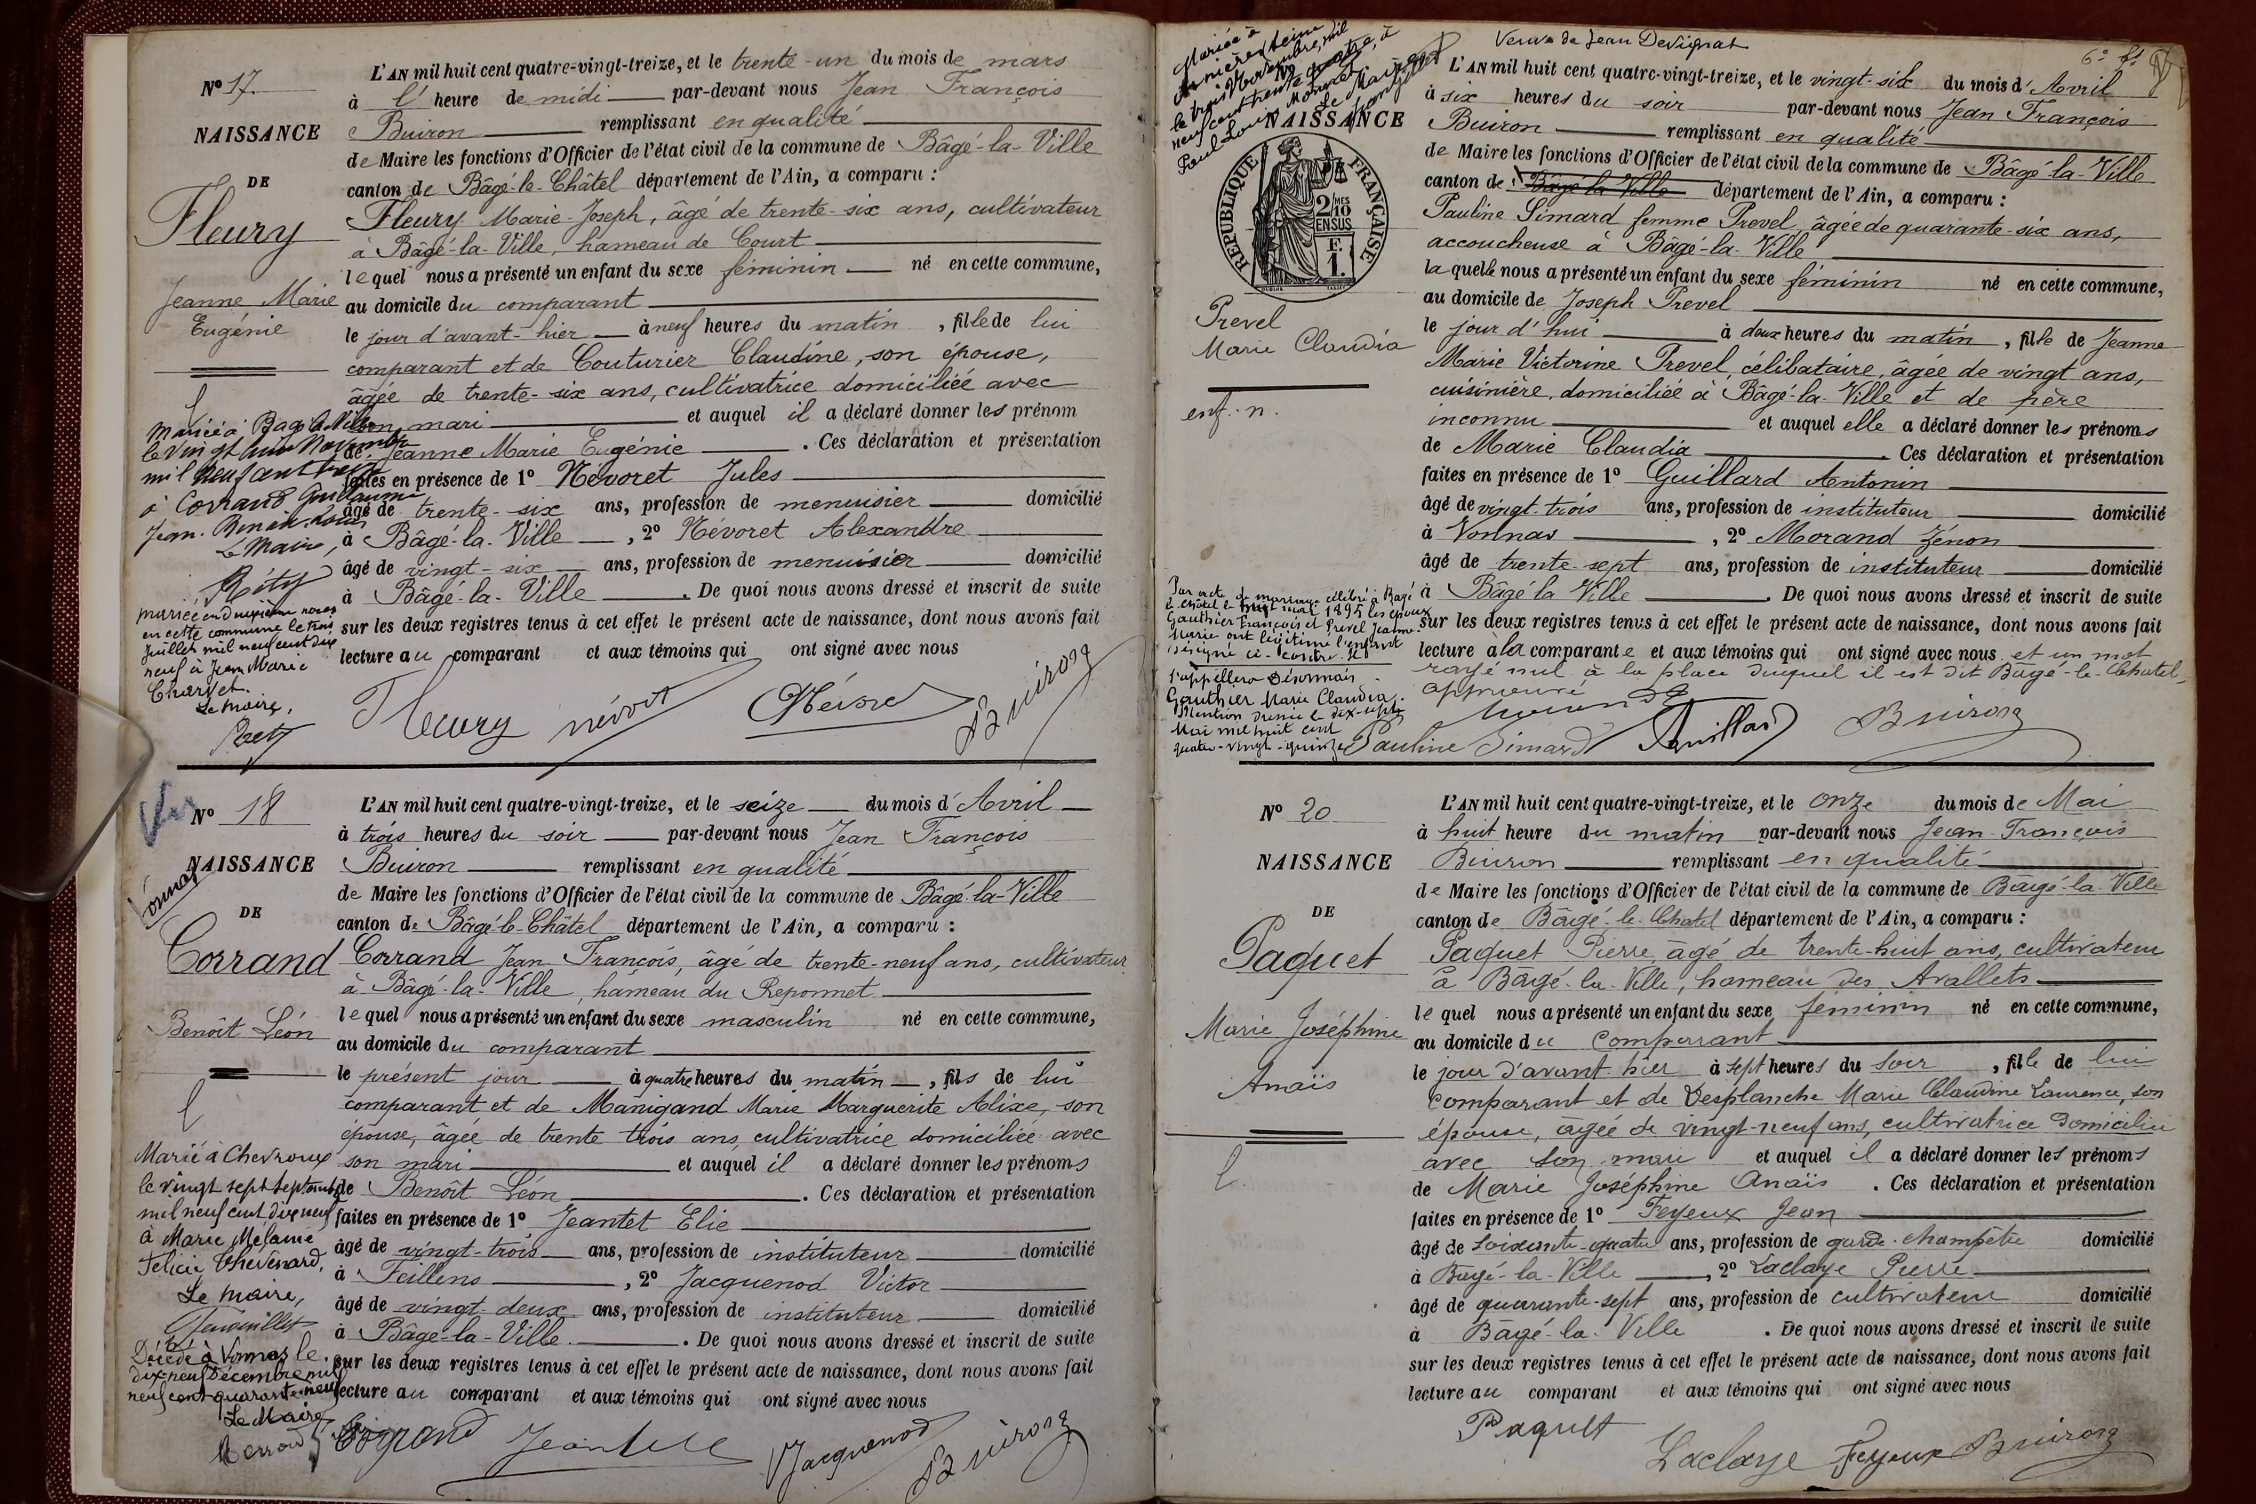 Nº 17.
NAISSANCE
DE
Fleury
Jeanne Marie
Eugénie
Mariée à Bagé la Ville
le vingt huit Novembre
mil neuf cent
à Corrand Guillaume
Jean. Benoit. Louis
Le Maire,
Réty
Mariée en deuxième noces
en cette commune le trois
juillet mil neuf cent dix
neuf à Jean Marie
Charvet.
Le Maire,
L'AN mil huit cent quatre-vingt-treize, et le trente-un du mois de mars
à l' heure de midi par-devant nous Jean François
Buiron remplissant en qualité
de Maire les fonctions d'Officier de l'état civil de la commune de Bâgé-la-Ville
canton de Bâgé-le-Châtel département de l'Ain, a comparu :
Fleury Marie-Joseph, âgé de trente-six ans, cultivateur
à Bâgé-la-Ville, hameau de Court
lequel nous a présenté un enfant du sexe féminin né en cette commune,
au domicile du comparant
le jour d'avant-hier à neuf heures du matin, fille de lui
comparant et de Couturier Claudine, son épouse,
âgée de trente-six ans, cultivatrice domiciliée avec
son mari et auquel il a déclaré donner les prénom
de Jeanne Marie Eugénie. Ces déclaration et présentation
faites en présence de 1º Névoret Jules
âgé de trente-six ans, profession de menuisier domicilié
à Bâgé-la-Ville, 2º Névoret Alexandre
âgé de vingt-six ans, profession de menuisier domicilié
à Bâgé-la-Ville. De quoi nous avons dressé et inscrit de suite
sur les deux registres tenus à cet effet le présent acte de naissance, dont nous avons fait
lecture au comparant et aux témoins qui ont signé avec nous
Fleury névoret Buiron
Nº 18
NAISSANCE
Vonnas
DE
Corrand
Benoît Léon
Marié à Chevroux
le vingt sept septembre
mil neuf cent dix neuf
à Marie Mélanie
Felicie Thévenard,
Le Maire,
Décédé à Vonnas le
dix-neuf Décembre mil
neuf cent quarante-neuf
Le Maire
L'AN mil huit cent quatre-vingt-treize, et le seize du mois d'Avril
à trois heures du soir par-devant nous Jean François
Buiron remplissant en qualité
de Maire les fonctions d'Officier de l'état civil de la commune de Bâgé-la-Ville
canton de Bâgé-le-Châtel département de l'Ain, a comparu :
Corrand Jean François, âgé de trente-neuf ans, cultivateur
à Bâgé-la-Ville, hameau du Reponnet
lequel nous a présenté un enfant du sexe masculin né en cette commune,
au domicile du comparant
le présent jour à quatre heures du matin, fils de lui
comparant et de Manigand Marie Marguerite Alixe, son
épouse, âgée de trente trois ans, cultivatrice domiciliée avec
son mari et auquel il a déclaré donner les prénoms
de Benoît Léon. Ces déclaration et présentation
faites en présence de 1º Jeantet Elie
âgé de vingt-trois ans, profession de instituteur domicilié
à Feillens, 2º Jacquenod Victor
âgé de vingt-deux ans, profession de instituteur domicilié
à Bâgé-la-Ville. De quoi nous avons dressé et inscrit de suite
sur les deux registres tenus à cet effet le présent acte de naissance, dont nous avons fait
lecture au comparant et aux témoins qui ont signé avec nous
Corrand Jeantet Jacquenod Buiron
Veuve de Jean Devignat
Mariée à
Asnières Seine
le trois Novembre, mil
neuf cent trente quatre, à
Paul Louis
Le Maire
NAISSANCE
RÉPUBLIQUE FRANÇAISE
2/10 MES
EN SUS
F.
1.
Prevel
Marie Claudia
enf. n.
Par acte de mariage célébré à Bagé
le châtel le huit mai 1895 les époux
Gauthier François et Prevel Jeanne
Marie ont légitimé l'enfant
désigné ci-contre. Il
s'appellera désormais
Gauthier Marie Claudia.
Mention dressée le dix-sept
Mai mil huit cent
quatre-vingt-quinze
L'AN mil huit cent quatre-vingt-treize, et le vingt-six du mois d'Avril
à six heures du soir par-devant nous Jean François
Buiron remplissant en qualité
de Maire les fonctions d'Officier de l'état civil de la commune de Bâgé-la-Ville
canton de Bâgé-la-Ville département de l'Ain, a comparu :
Pauline Simard femme Prevel, âgée de quarante-six ans,
accoucheuse à Bâgé-la-Ville
laquelle nous a présenté un enfant du sexe féminin né en cette commune,
au domicile de Joseph Prevel
le jour d'hui à deux heures du matin, fille de Jeanne
Marie Victorine Prevel, célibataire, âgée de vingt ans,
cuisinière, domiciliée à Bâgé-la-Ville et de père
inconnu et auquel elle a déclaré donner les prénoms
de Marie Claudia. Ces déclaration et présentation
faites en présence de 1º Guillard Antonin
âgé de vingt-trois ans, profession de instituteur domicilié
à Vonnas, 2º Morand Zénon
âgé de trente-sept ans, profession de instituteur domicilié
à Bâgé la Ville. De quoi nous avons dressé et inscrit de suite
sur les deux registres tenus à cet effet le présent acte de naissance, dont nous avons fait
lecture à la comparante et aux témoins qui ont signé avec nous et un mot
rayé nul à la place duquel il est dit Bâgé-le-Châtel,
approuvé
Morand
Pauline Simard Guillard Buiron
Nº 20
NAISSANCE
DE
Paquet
Marie Joséphine
Anaïs
L'AN mil huit cent quatre-vingt-treize, et le onze du mois de Mai
à huit heure du matin par-devant nous Jean-François
Buiron remplissant en qualité
de Maire les fonctions d'Officier de l'état civil de la commune de Bâgé-la-Ville
canton de Bâgé-le-Chatel département de l'Ain, a comparu :
Paquet Pierre, âgé de trente-huit ans, cultivateur
à Bâgé-la-Ville, hameau des Avallets
lequel nous a présenté un enfant du sexe féminin né en cette commune,
au domicile du comparant
le jour d'avant hier à sept heures du soir, fille de lui
comparant et de Desplanche Marie Claudine Laurence, son
épouse, âgée de vingt-neuf ans, cultivatrice domiciliée
avec son mari et auquel il a déclaré donner les prénoms
de Marie Joséphine Anaïs. Ces déclaration et présentation
faites en présence de 1º Feyeux Jean
âgé de soixante-quatre ans, profession de garde-champêtre domicilié
à Bâgé-la-Ville, 2º Laclaye Pierre
âgé de quarante-sept ans, profession de cultivateur domicilié
à Bâgé-la-Ville. De quoi nous avons dressé et inscrit de suite
sur les deux registres tenus à cet effet le présent acte de naissance, dont nous avons fait
lecture au comparant et aux témoins qui ont signé avec nous
Paquet
Laclaye Feyeux Buiron